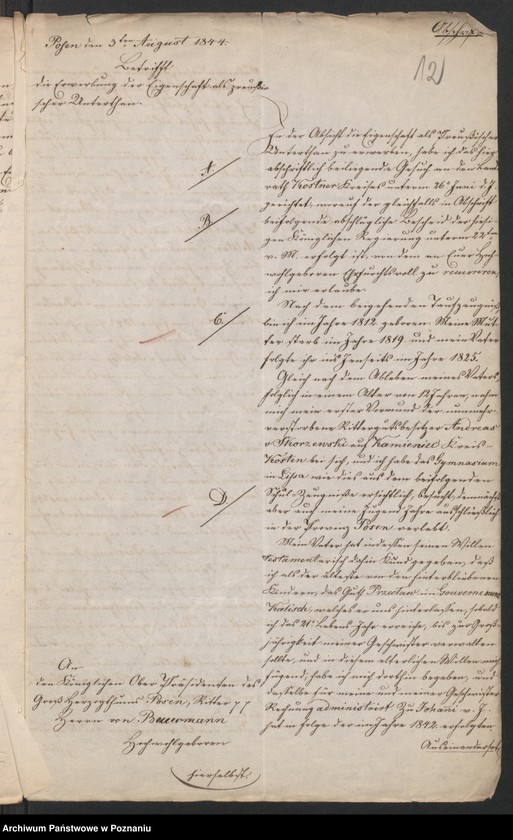 Abschrift.
12
Posen den 3ten August 1844.
Betrifft
die Erwerbung der Eigenschaft als preußi-
scher Unterthan.
In der Absicht die Eigenschaft als Preußischer
Unterthan zu erwerben, habe ich das hier
abschriftlich beiliegende Gesuch an den Land
rath Kostner Kreises unterm 26t Juni d. J.
gerichtet, worauf der gleichfalls in Abschrift
beifolgende abschlägliche Bescheid der hiesi-
gen Königlichen Regierung unterm 22ten
v. M. erfolgt ist, von dem an Euer Hoch-
wohlgeboren Ehrfurchtsvoll zu
ich mir erlaube.
Nach dem beigehenden Taufzeugniß
bin ich im Jahre 1812 geboren. Meine Mut-
ter starb im Jahre 1819 und mein Vater
folgte ihr ins Jenseits im Jahre 1825.
Gleich nach dem Ableben meines Vaters,
folglich in einem Alter von 12 Jahren, nahm
mich mein erster Vormund der nunmehr
verstorbene Rittergutsbesitzer Andreas
v Skorzewski auf Kamieniec Kreis-
Kosten bei sich, und ich habe das Gymnasium
in Lissa wie dies aus dem beifolgenden
Schul-Zeugniße ersichtlich, besucht, demnächst
aber auch meine Jugend Jahre ausschließlich
in der Provinz Posen verlebt.
Mein Vater hat indessen seinen Willen
testamentarisch dahin kund gegeben, daß
ich als der älteste von den hinterbliebenen
Kindern, das Guth im Gouvernement
Kalisch, welches er uns hinterlassen, sobald
ich das 21t Lebens Jahr erreiche, bis zur Groß-
jährigkeit meiner Geschwister verwalten
sollte, und in diesem elterlichen Willen mich
fügend, habe ich mich dorthin begeben, und
dasselbe für meine und meiner Geschwister
Rechnung administrirt. Zu Johani v. J.
hat in Folge der im Jahre 1842 erfolgten
Auseinandersetz
A.
B.
C.
D.
An
den Königlichen Ober Präsidenten des
Groß Herzogthums Posen, Ritter pp
Herrn von Beurmann
Hochwohlgeboren
hierselbst.
Archiwum Państwowe w Poznaniu